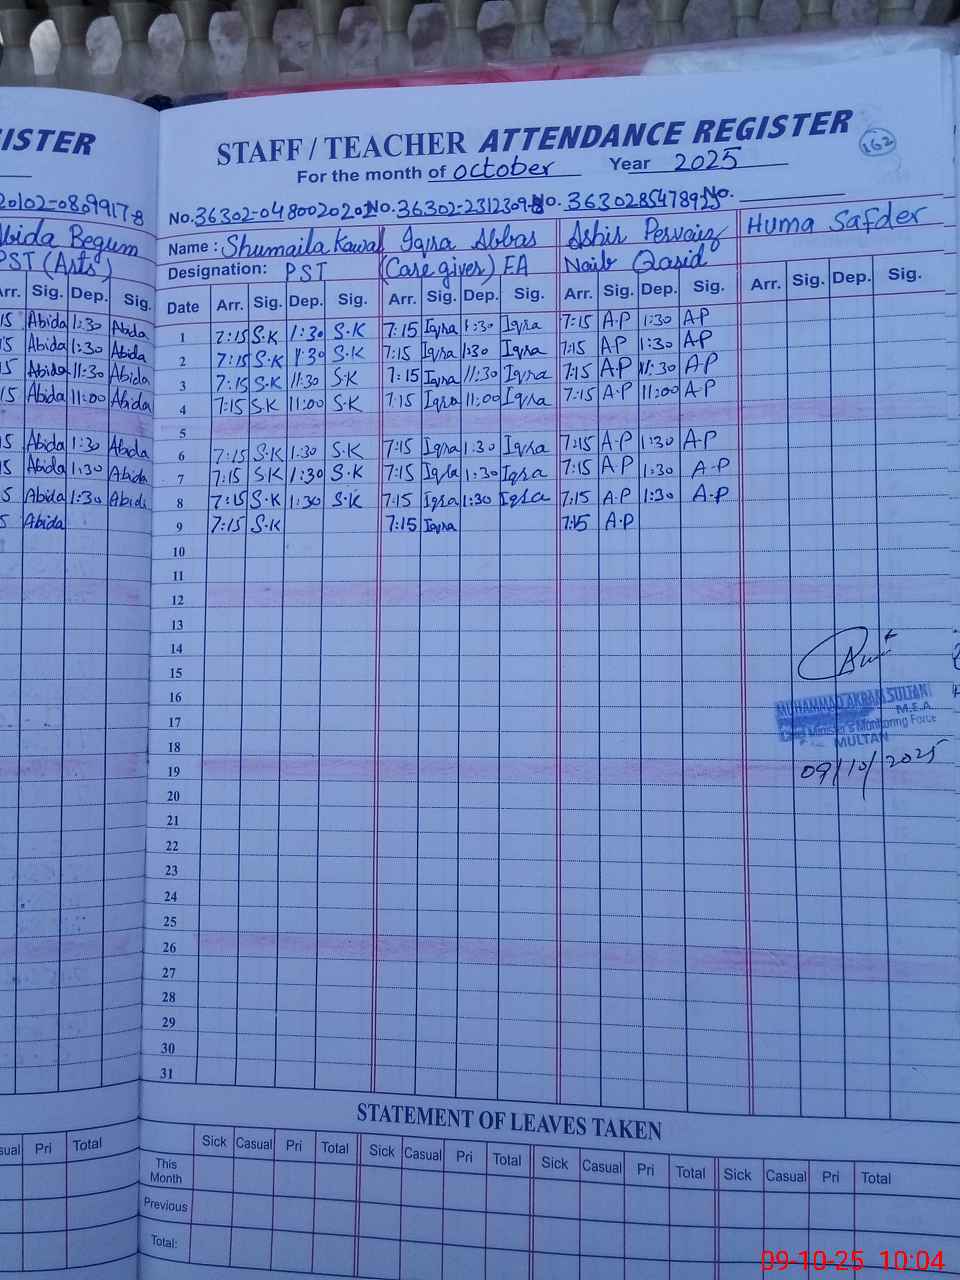 ISTER
STAFF / TEACHER ATTENDANCE REGISTER
162
For the month of October Year 2025
20102-0809917-8
No. 36302-0480020202 No. 36302-2312309-8 No. 3630285478953 No.
Abida Begum Name : Shumaila Kawal Iqra Abbas Ashir Pervaiz Huma Safder
PST (Arts) Designation: PST (Care giver) EA Naib Qasid
Arr. Sig. Dep. Sig. Date Arr. Sig. Dep. Sig. Arr. Sig. Dep. Sig. Arr. Sig. Dep. Sig. Arr. Sig. Dep. Sig.
15 Abida 1:30 Abida 1 7:15 S.K 1:30 S.K 7:15 Iqra 1:30 Iqra 7:15 A.P 1:30 A.P
15 Abida 1:30 Abida 2 7:15 S.K 1:30 S.K 7:15 Iqra 1:30 Iqra 7:15 AP 1:30 A.P
15 Abida 11:30 Abida 3 7:15 S.K 11:30 S.K 7:15 Iqra 11:30 Iqra 7:15 A.P 11:30 A.P
15 Abida 11:00 Abida 4 7:15 S.K 11:00 S.K 7:15 Iqra 11:00 Iqra 7:15 A.P 11:00 A.P
5
5 Abida 1:30 Abida 6 7:15 S.K 1:30 S.K 7:15 Iqra 1:30 Iqra 7:15 A.P 1:30 A.P
15 Abida 1:30 Abida 7 7:15 SK 1:30 S.K 7:15 Iqra 1:30 Iqra 7:15 A.P 1:30 A.P
5 Abida 1:30 Abida 8 7:15 S.K 1:30 S.K 7:15 Iqra 1:30 Iqra 7:15 A.P 1:30 A.P
5 Abida 9 7:15 S.K 7:15 Iqra 7:15 A.P
10
11
12
13
14
15
16
MUHAMMAD AKRAM SULTAN
M.E.A
17
Chief Minister's Monitoring Force
18
MULTAN
19
09/10/2025
20
21
22
23
24
25
26
27
28
29
30
31
STATEMENT OF LEAVES TAKEN
sual Pri Total Sick Casual Pri Total Sick Casual Pri Total Sick Casual Pri Total Sick Casual Pri Total
This Month
Previous
Total:
09-10-25 10:04